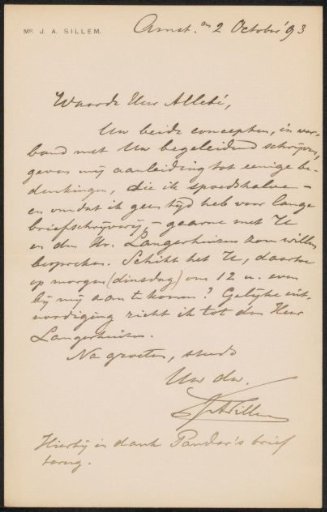 MR. J. A. SILLEM.
Amst. 2 October '93
Waarde Heer Allebé,
Uw beide concepten, in ver-
band met Uw begeleidend schrijven,
geven mij aanleiding tot eenige be-
denkingen, die ik spoedshalve –
en omdat ik geen tijd heb voor lange
briefschrijverij – gaarne met U
en den Hr. Langerhuizen zou willen
bespreken. Schikt het U, daartoe
op morgen (dinsdag) om 12 u. even
bij mij aan te komen? Gelijke uit-
noodiging richt ik tot den Heer
Langerhuizen.
Na groeten, steeds
Uw dw.
JASillem
Hierbij in dank Pander's brief
terug.